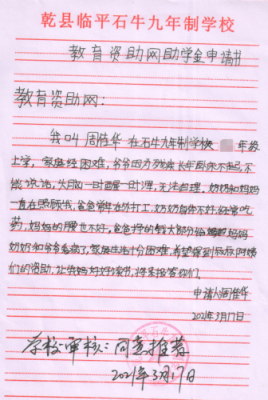 乾县临平石牛九年制学校
教育资助网助学金申请书
教育资助网：
我叫周佳华 在石牛九年制学校 年级
上学，家庭经困难，爷爷因为残疾长年卧床不起，不
能说话，大小便一时而一时，无法自理，奶奶和妈妈
一直在照顾我，爸爸常年在外打工，奶奶身体不好，经常吃
药，妈妈的腰也不好，爸爸挣的钱大部分给妈妈
奶奶和爷爷看病了，家庭生活十分困难，希望得到叔叔阿姨
们的资助，让我好好读书，将来报答你们。
申请人周佳华
2021年3月17日
学校审核：同意推荐
2021年3月17日